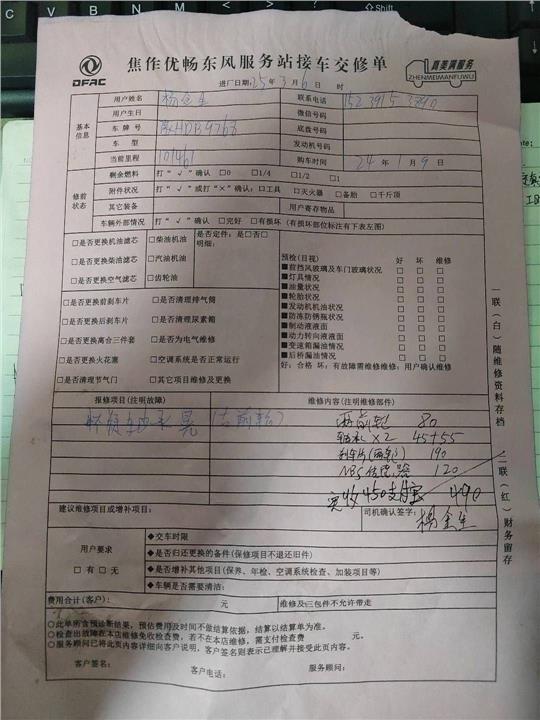 焦作优畅东风服务站接车交修单
DFAC
真美满服务
ZHENMEIMANFUWU
进厂日期:25年3月6日 时
基本信息
用户姓名 杨金生 联系电话
用户生日 微信号码
车牌号 底盘号码
车型 发动机号码
当前里程 101461 购车时间 24年1月9日
修前状态
剩余燃料 打“√”确认 □0 □1/4 □1/2 □1
附件状况 打“√”或打“×”确认:□工具 □灭火器 □备胎 □千斤顶
其它装备 用户寄存物品
车辆外部情况 打“√”确认 □完好 □有损坏(有损坏部位标注有下表左图)
□是否更换机油滤芯 □柴油机油
□是否更换柴油滤芯 □汽油机油
□是否更换空气滤芯 □齿轮油
是否定件:是□否□
明细:
□是否更换前刹车片 □是否清理排气筒
□是否更换后刹车片 □是否清理尿素箱
□是否更换离合三件套 □是否为电气维修
□是否更换火花塞 □空调系统是否正常运行
□是否清理节气门 □其它项目维修及更换
预检(目视) 好 坏 维修
■前挡风玻璃及车门玻璃状况 □ □ □
■灯具情况 □ □ □
■油量状况 □ □ □
■轮胎状况 □ □ □
■发动机机油状况 □ □ □
■防冻防锈瓶状况 □ □ □
■制动液液面 □ □ □
■动力转向液液面 □ □ □
■变速箱漏油情况 □ □ □
■后桥漏油情况 □ □ □
好:合格 坏:有故障需维修维修:用户确认维修
报修项目(注明故障) 维修内容(注明维修部件)
(右前轮)
两前轮 80
轴承×2 45+55
刹车片(两轮) 190
120
实收450支付宝 490
建议维修项目或增补项目: 司机确认签字:
杨金生
用户要求
□有□无
◆交车时限
◆是否归还更换的备件(保修项目不退还旧件)
◆是否增补其他项目(保养、年检、空调系统检查、加装项目等)
◆车辆是否需要清洁:
费用合计(客户): 元 维修及三包件不允许带走
○此单所含预诊断结果,预估费用及时间不做结算依据,结算以结算单为准。
○检查出故障在本店维修免收检查费,若不在本店维修,需支付检查费 元。
○服务顾问已将此页内容详细向客户说明,客户签名则表示已理解并接受此页内容。
客户签名: 客户电话: 服务顾问:
一联(白)随维修资料存档
二联(红)财务留存